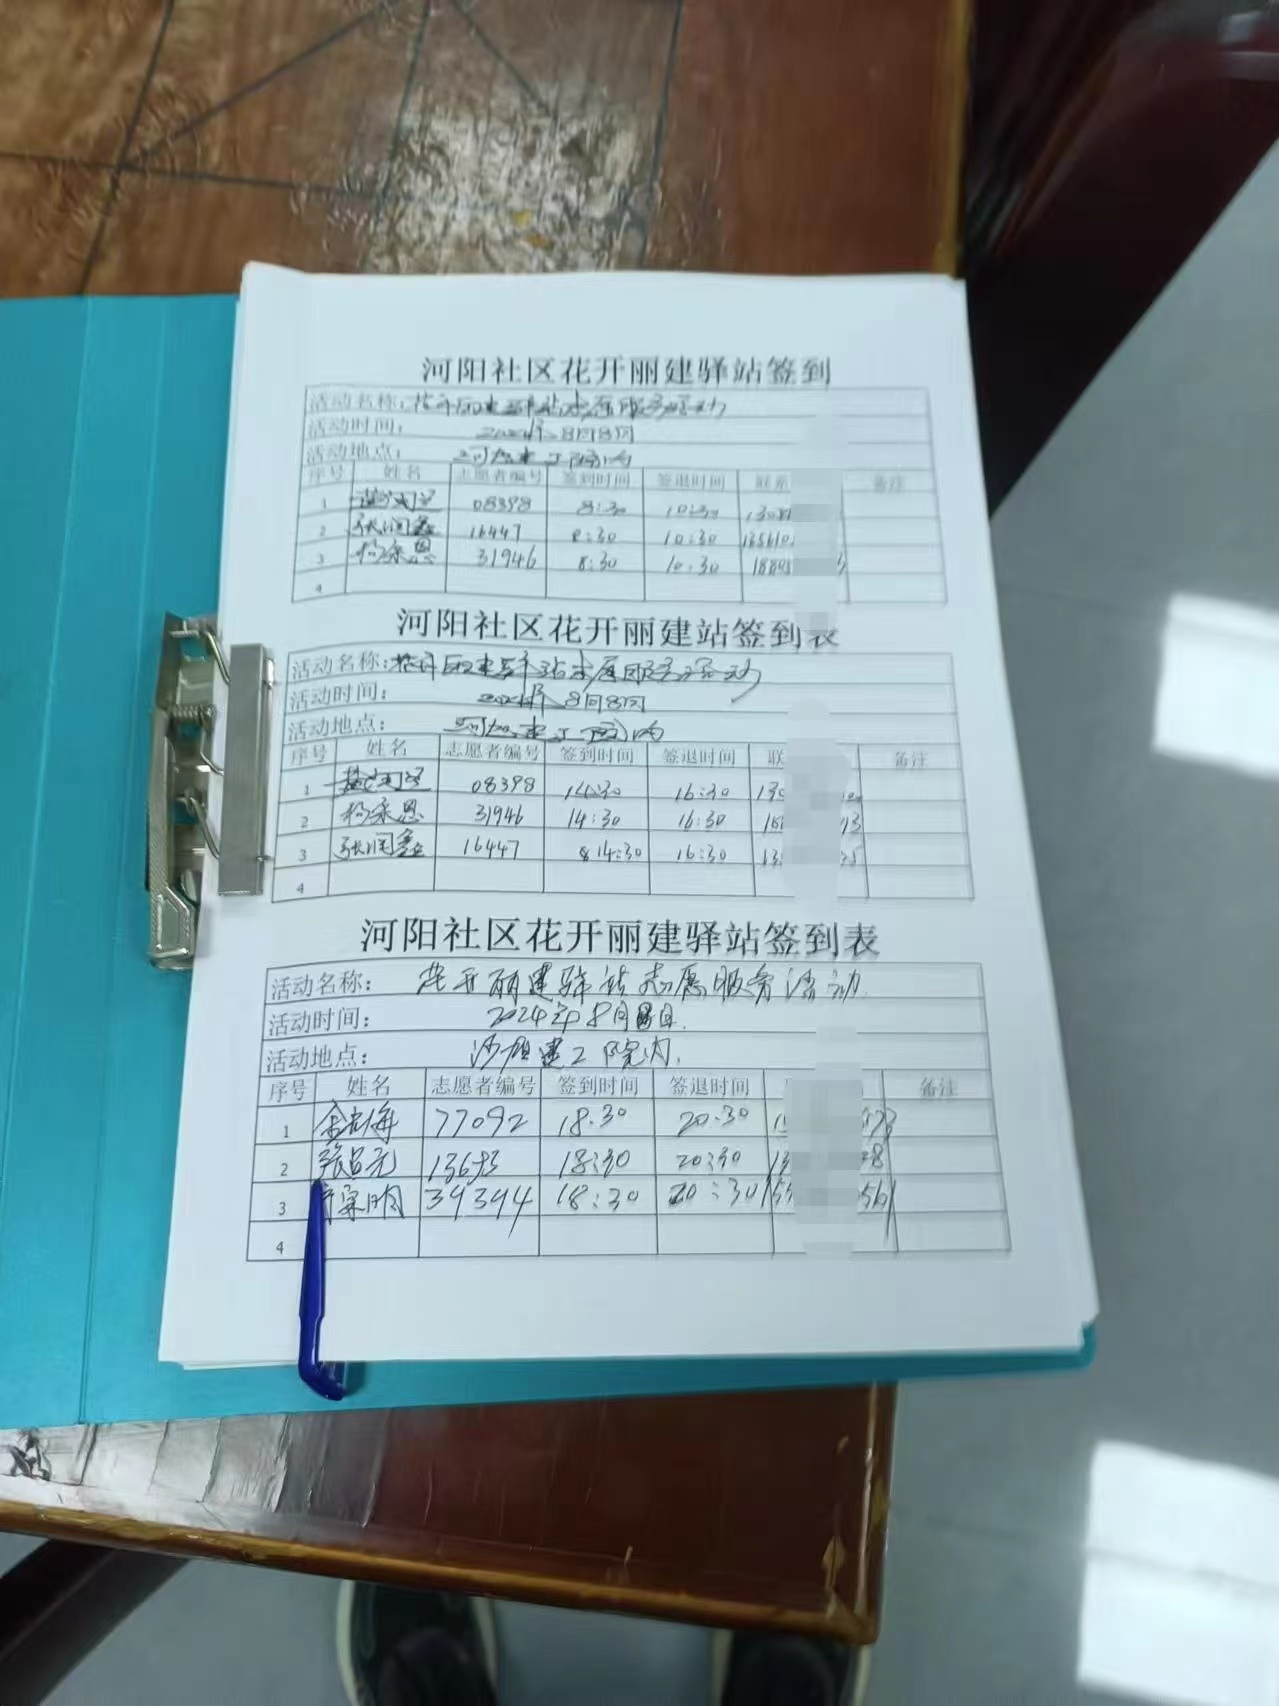 河阳社区花开丽建驿站签到
活动名称：花开丽建驿站志愿服务活动
活动时间： 2024年8月8日
活动地点：
序号 姓名 志愿者编号 签到时间 签退时间 联系 备注
1 08398 8:30 10:30
2 张润鑫 16447 8:30 10:30
3 杨家恩 31946 8:30 10:30
4
河阳社区花开丽建站签到表
活动名称：花开丽建驿站志愿服务活动
活动时间： 2024年8月8日
活动地点：
序号 姓名 志愿者编号 签到时间 签退时间 联 备注
1 08398 14:30 16:30
2 杨家恩 31946 14:30 16:30
3 张润鑫 16447 14:30 16:30
4
河阳社区花开丽建驿站签到表
活动名称： 花开丽建驿站志愿服务活动
活动时间： 2024年8月8日
活动地点： 建工院内
序号 姓名 志愿者编号 签到时间 签退时间 备注
1 77092 18:30 20:30
2 18:30 20:30
3 39394 18:30 20:30
4